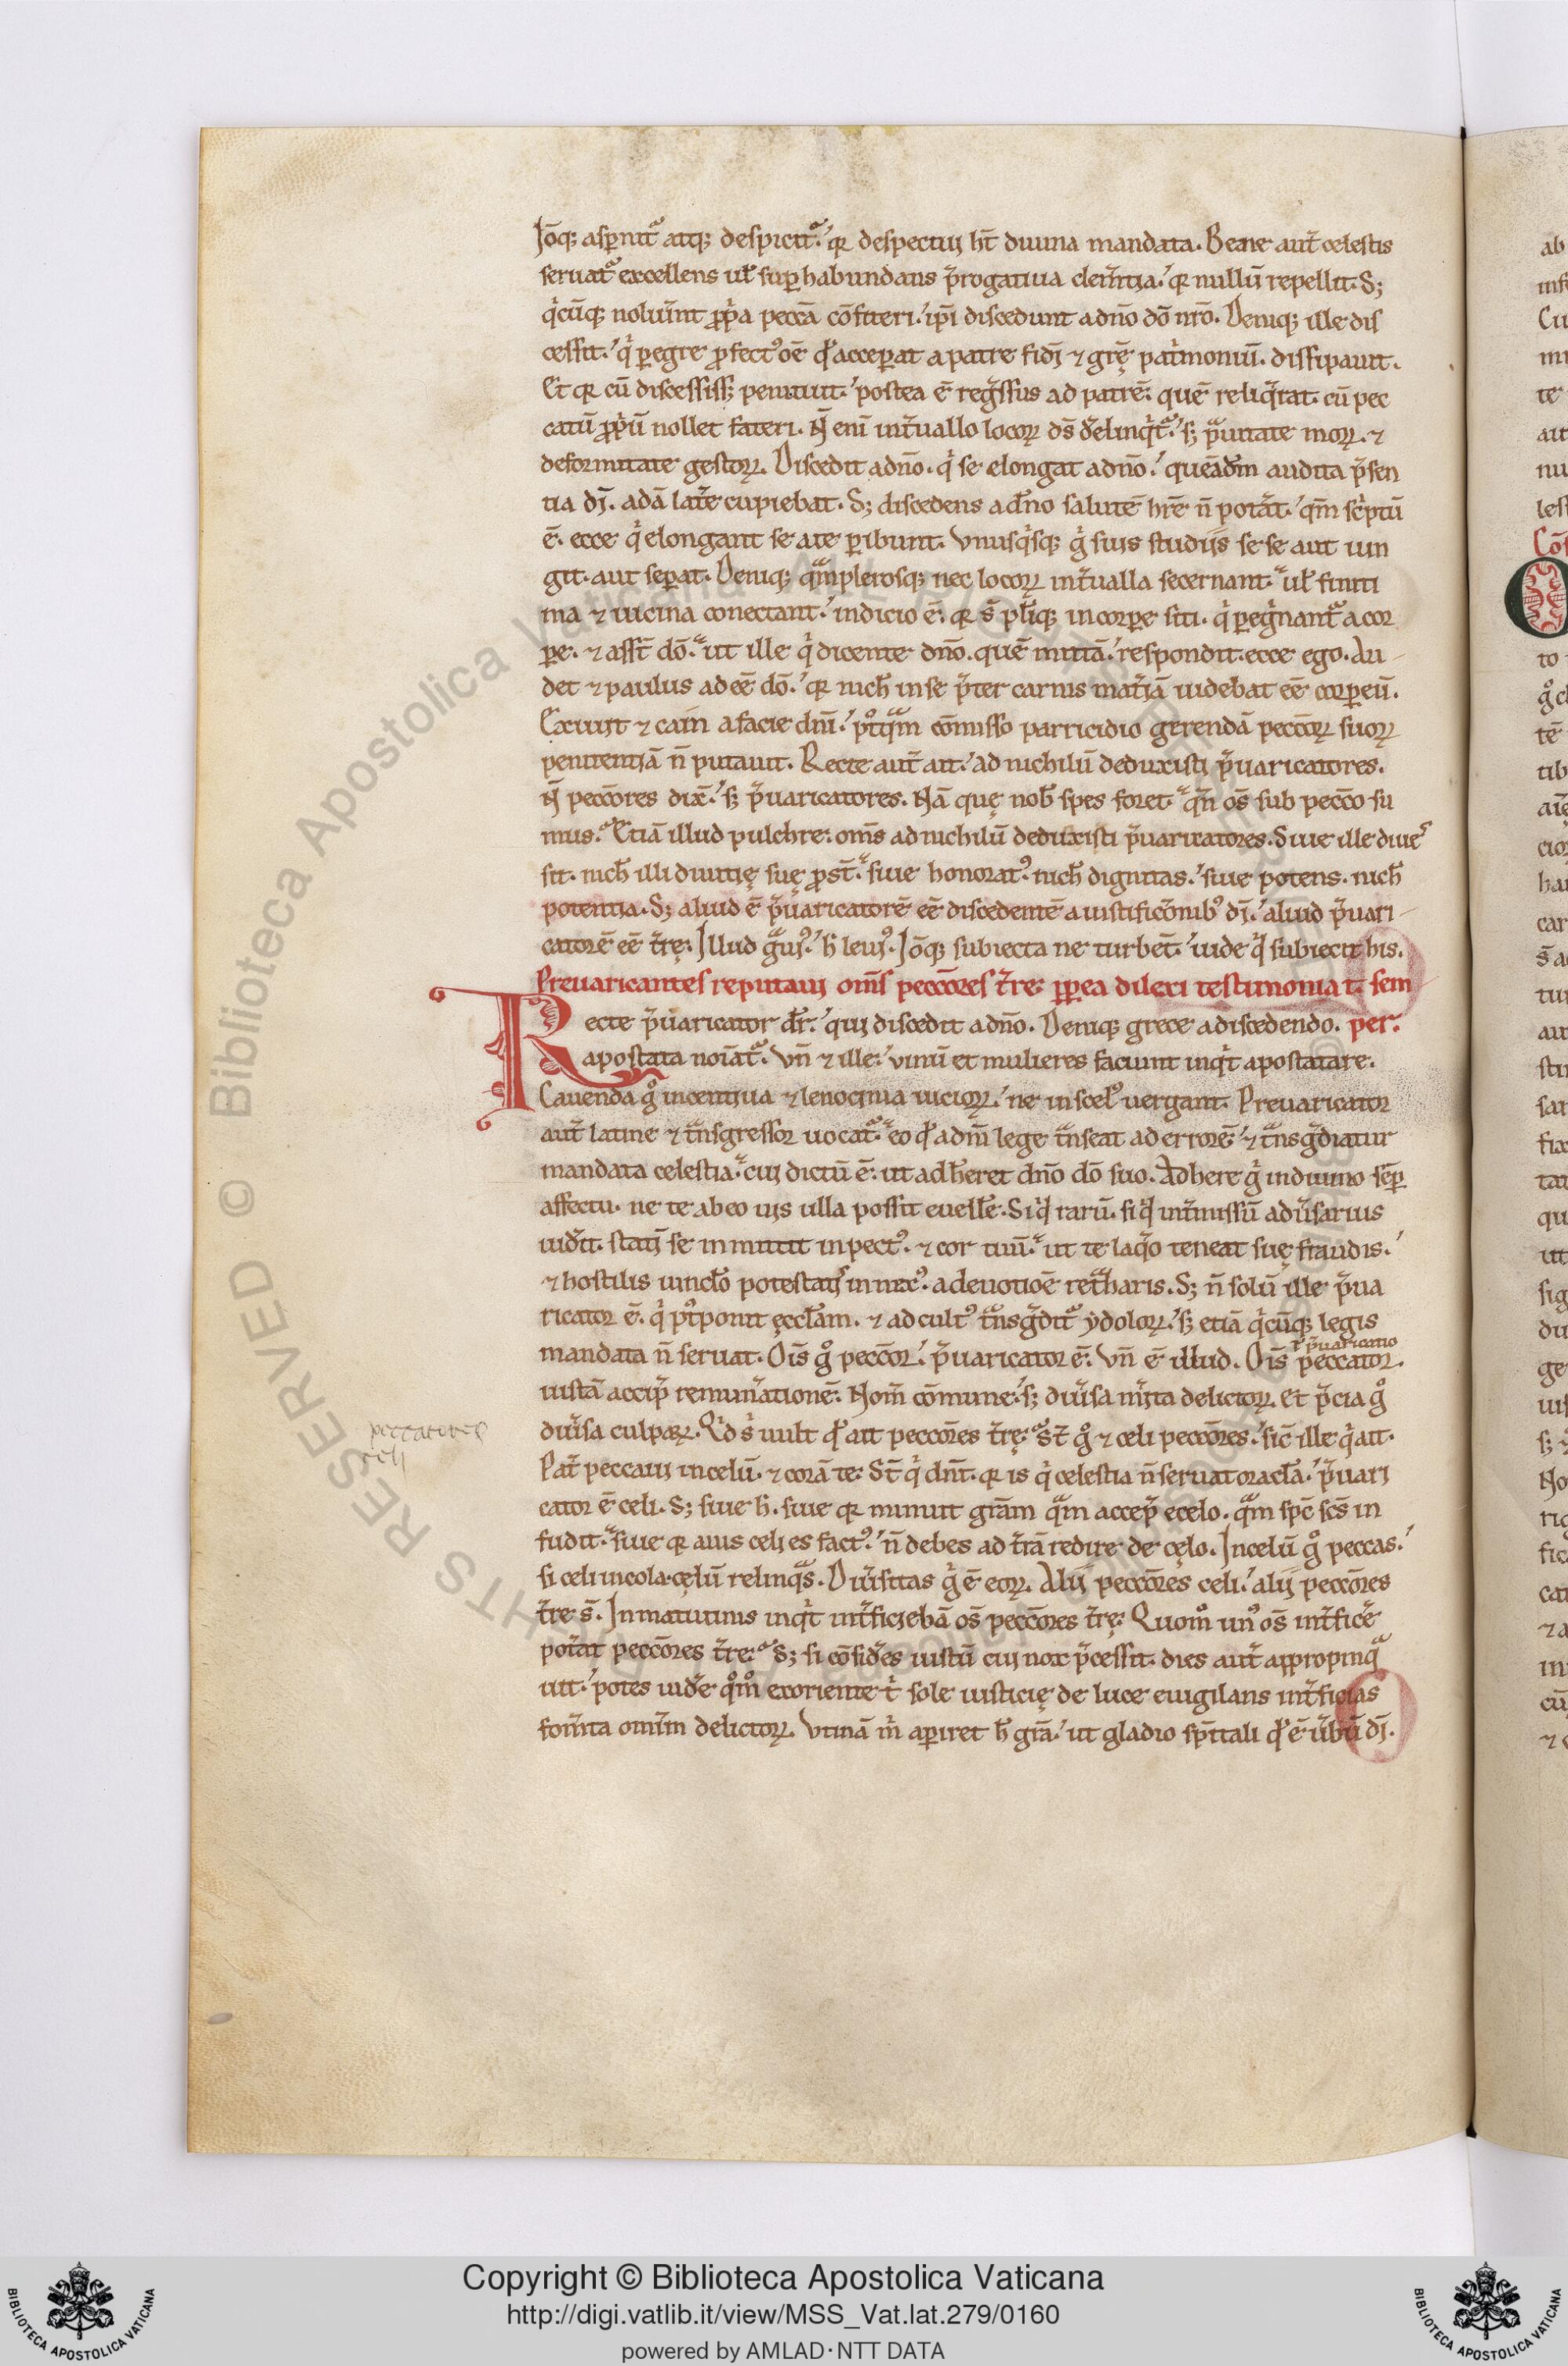 Ioq̄; asp̄nit᷑ atq; despicit᷑. qr despectui ht̄ diuina mandata. Bene aut̄ celestis
seruat᷑ excellens ul̄ suphabundans p̄rogatiua clem̄tia. qr nullū repellit. S;
q̇cūq; noluīnt pṗa peccā cōfiteri. ip̄i discedunt adn̄o dō nr̄o. Deniq; ille dis
cessit. q̇ pegre pfectꝰ oē qd̄ acceperat a patre fidj ⁊ grę̄ pat̄moniū. dissipauit.
Et qr cū discessiss; penituit. postea ē reg̃ssus ad patrē. quē reliq̃rat. cū pec
catū pṗū nollet fateri. N̄ enī int̄uallo locoꝝ ds̄ d̄elinq̇t᷑. s; p̃uitate moꝝ. ⁊
deformitate gestoꝝ. Discedit adn̄o. q̇ se elongat adn̄o. quēad̄m audita p̄sen
tia dj̄. adā lat̄e cupiebat. S; discedens ad̄no salutē hr̄e n̄ pot̄at. qm̄ sċptū
ē. ecce q̇ elongant se a te pibunt. Vnusq̇sq; g̊ suis studijs se se aut iun
git. aut sep̄at. Deniq; q̃mplerosq; nec locoꝝ int̄ualla secernant. ul̄ finiti
ma ⁊ uicina conectant. indicio ē. qr s̄ pl̄iq; in corpe siti. q̇ peg̃nant᷑ a cor
pe. ⁊ ass̄t dō. ut ille q̇ dicente dn̄o. quē mittā. respondit. ecce ego. Au
det ⁊ paulus ad eē dō. qr nich̄ in se p̄ter carnis mat̄iā uidebat eē corpeū.
Exiuit ⁊ cain a facie dn̄i. ptq̃m cōmisso parricidio gerendā peccōꝝ suoꝝ
penitentiā n̄ putauit. Recte aut̄ ait. ad nichilū deduxisti p̄uaricatores.
N̄ peccōres dix̄. s; p̄uaricatores. Nā quę nob̄ spes foret. qn̄ os̄ sub peccō su
mus. Etiā illud pulchre. oms̄ ad nichilū deduxisti p̄uaricatores. Siue ille diues
sit. nich̄ illi diuitię suę ps̄t. siue honoratꝰ. nich̄ dignitas. siue potens. nich̄
potentia. S; aliud ē p̄uaricatorē eē discedentē a iustificōnibꝰ dj̄. aliud p̄uari
catorē eē t̄rę. Illud g̃uiꝰ. h̄ leuiꝰ. Ioq̄; subiecta ne turbēt. uide qd̄ subiecit his.
Preuaricantes reputaui oms̄ peccōres t̄re. ppea dilexi testimonia t. sem
per.
Recte p̄uaricator dr̄. qui discedit adn̄o. Deniq; grece a discedendo.
apostata noīat᷑. Vn̄ ⁊ ille. uinū et mulieres faciunt inq̇t apostatare.
Cauenda g̊ incentiua ⁊ lenocinia uicioꝝ. ne in scelꝰ uergant. Preuaricator
aut̄ latine ⁊ t̃nsgressor uocat᷑. eo qd̄ adm̄ lege t̃nseat ad errorē. ⁊ t̃nsg̃diatur
mandata celestia. cui dictū ē. ut adh̄eret dn̄o dō suo. Adhere g̊ in diuino sēp
affectu. ne te ab eo uis ulla possit euell̄e. Siqd̄ rarū. siqd̄ int̄missū adūsarius
uid̄it. statī se inmittit in pectꝰ. ⁊ cor tuū. ut te laq̄o teneat suę fraudis.
⁊ hostilis uincl̄o potestatis innexꝰ. a deuotioē ret̃haris. S; n̄ solū ille p̄ua
ricator ē. q̇ ptponit ęccl̄am. ⁊ ad cultꝰ t̃nsg̃dit᷑ ydoloꝝ. s; etiā q̇cūq; legis
mandata n̄ seruat. Ois̄ g̊ peccōr. p̄uaricator ē. Vn̄ ē illud. Ois̄ peccator.
ł p̄uaricatio
iustā accip̄ remun̄ationē. Nom̄ cōmune. s; diūsa m̄ita delictoꝝ. Et p̄cia g̊
diūsa culpaꝝ. Qd̄ s̊ uult qd̄ ait peccōres t̄rę. St̄ g̊ ⁊ celi peccōres. sic̄ ille q̇ ait.
Pat̄ peccaui in celū. ⁊ corā te. St̄ q̇ dn̄t. qr is q̇ celestia n̄ seruat oracl̄a. p̄uari
cator ē celi. S; siue h̄. siue qr minuit grām q̃m accep̄ e celo. q̃m sp̄c sc̄s in
fudit. siue qr auis celi es factꝰ. n̄ debes ad t̄rā redire de cęlo. In celū g̊ peccas.
si celi incola. cęlū relinq̃s. Diūsitas g̊ ē eoꝝ. Alij peccōres celi. alij peccōres
t̄re s̄. In matutinis inq̇t int̄ficiebā os̄ peccōres t̄rę. Quom̊ unꝰ os̄ int̄fic̄e
pot̄at peccōres t̄re. S; si cōsid̄es iustū cui nox p̄cessit. dies aut̄ appropinq̃
uit. potes uid̄e q̊m̊ exoriente ṫ sole iusticię de luce euigilans int̄ficias
fom̄ta omīm delictoꝝ. Vtinā ṁ apiret h̄ grā. ut gladio sp̄itali qd̄ ē ūbū dj̄.
peccatores
celi
Copyright © Biblioteca Apostolica Vaticana
http://digi.vatlib.it/view/MSS_Vat.lat.279/0160
powered by AMLAD·NTT DATA
BIBLIOTECA APOSTOLICA VATICANA
BIBLIOTECA APOSTOLICA VATICANA